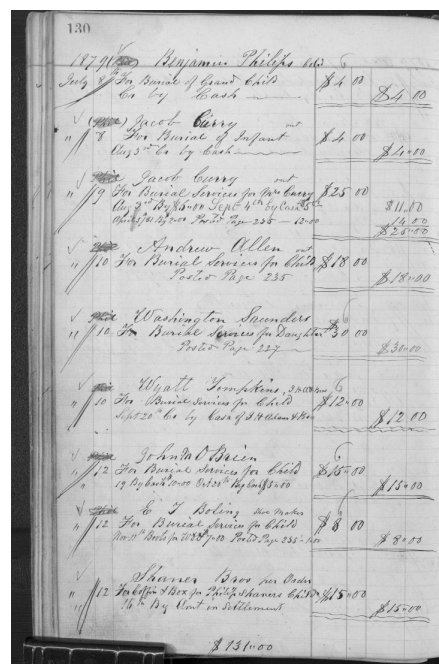 130
1879 Benjamin Philips Cold
July 8 For Burial of Grand Child $4 00
Cr by Cash $4.00
Jacob Curry out
" 8 For Burial of Infant $4 00
Aug 3rd Cr by Cash $4.00
Jacob Curry out
" 9 For Burial Services for Mrs Curry $25 00
Aug 3rd By $5.00 Sept 4th by Cash $11.00
Posted Page 235 - 12.00 14.00
$25.00
Andrew Allen out
" 10 For Burial Services for Child $18 00
Posted Page 235 $18.00
Washington Saunders
" 10 For Burial Services for Daughter $30 00
Posted Page 227 $30.00
Wyatt Tompkins
" 10 For Burial Services for Child $12.00
Sept 20th Cr by Cash of $12 00
John M O'Brien
" 12 For Burial Services for Child $15.00
19 By Cash 10.00 Oct 20th By Cash $5.00 $15.00
C T Boling Shoe Maker
" 12 For Burial Services for Child $8 00
Posted Page 235 $8.00
Shaner Bros per Order
" 12 For Coffin & Box for Philip Shaners Child $15.00
" 16th By Amt in Settlement $15.00
$131.00